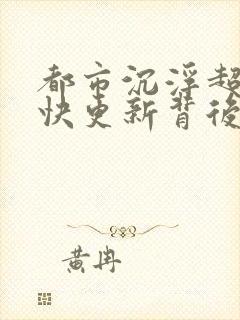 都市沉浮超
快更新背後
黄冉